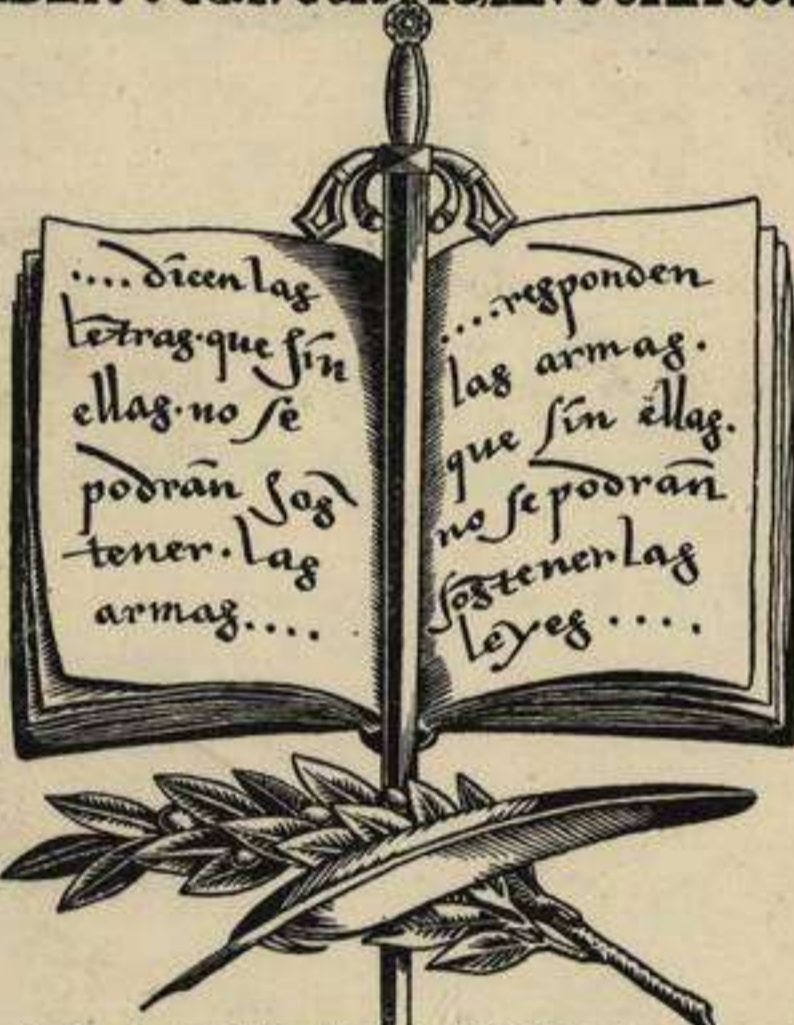 ....dicen las
letras·que sin
ellas·no se
podrán sos
tener·las
armas....
....responden
las armas.
que sin ellas.
no se podrán
sostener las
leyes....